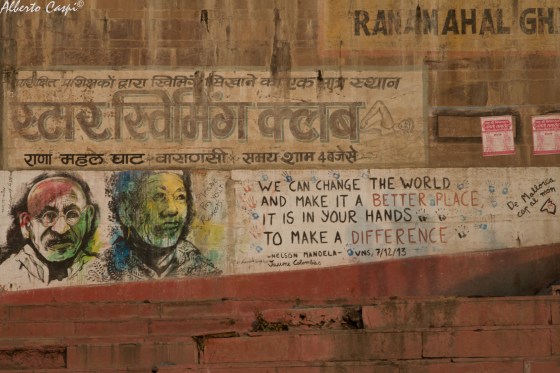 Alberto Caspi©
RANAMAHAL GH
प्रशिक्षकों द्वारा स्विमिंग सिखाने का एक मात्र स्थान
स्टार स्विमिंग क्लाब
राणा महल घाट - वाराणसी - समय शाम 4 बजे से
WE CAN CHANGE THE WORLD
AND MAKE IT A BETTER PLACE,
IT IS IN YOUR HANDS
TO MAKE A DIFFERENCE
-NELSON MANDELA- VNS, 7/12/13
Jaume Colombàs
De Mallorca
cap al món